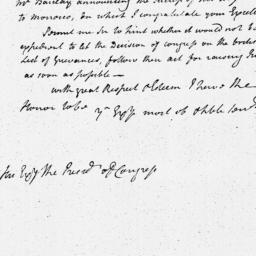 Mr Barclay announcing the
to morocco, On which I congratulate your Excell
Permit me Sir to hint whether it would not be
expedient to let the Decision of congress on the
List of Grievances, follow their act for raising
as soon as possible—
with great Respect & Esteem I have the
Honor to be yr Exys most ob
His Exy The Presdt of Congress